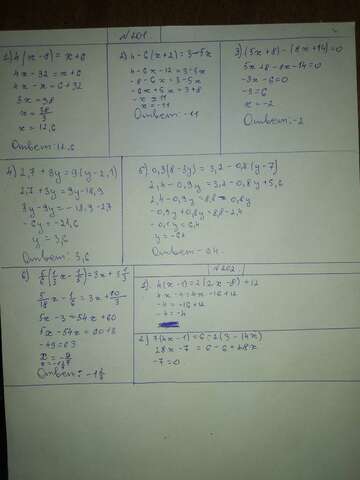 №201.
1) 4(x-8)=x+6
4x-32=x+6
4x-x=6+32
3x=38
x=38/3
x=12,6
Ответ: 12,6
2) 4-6(x+2)=3-5x
4-6x-12=3-5x
-6x+5x=3+8
-x=11
x=-11
Ответ: -11
3) (5x+8)-(8x+14)=0
5x+8-8x-14=0
-3x-6=0
-3=6
x=-2
Ответ: -2
4) 2,7+3y=9(y-2,1)
2,7+3y=9y-18,9
3y-9y=-18,9-2,7
-6y=-21,6
y=3,6
Ответ: 3,6
5) 0,3(8-3y)=3,2-0,8(y-7)
2,4-0,9y=3,2-0,8y+5,6
2,4-0,9y=8,8-0,8y
-0,9y+0,8y=8,8-2,4
-0,1y=6,4
y=-64
Ответ: -64.
6) 5/6(1/3x-1/5)=3x+3 1/3
5/18x-1/6=3x+10/3
5x-3=54x+60
5x-54x=60+3
-49=63
x=-9/7
Ответ: -1 2/7
№202.
1) 4(x-1)=2(2x-8)+12
4x-4=4x-16+12
-4=-16+12
-4=-4
2) 7(4x-1)=6-2(3-14x)
28x-7=6-6+28x
-7=0